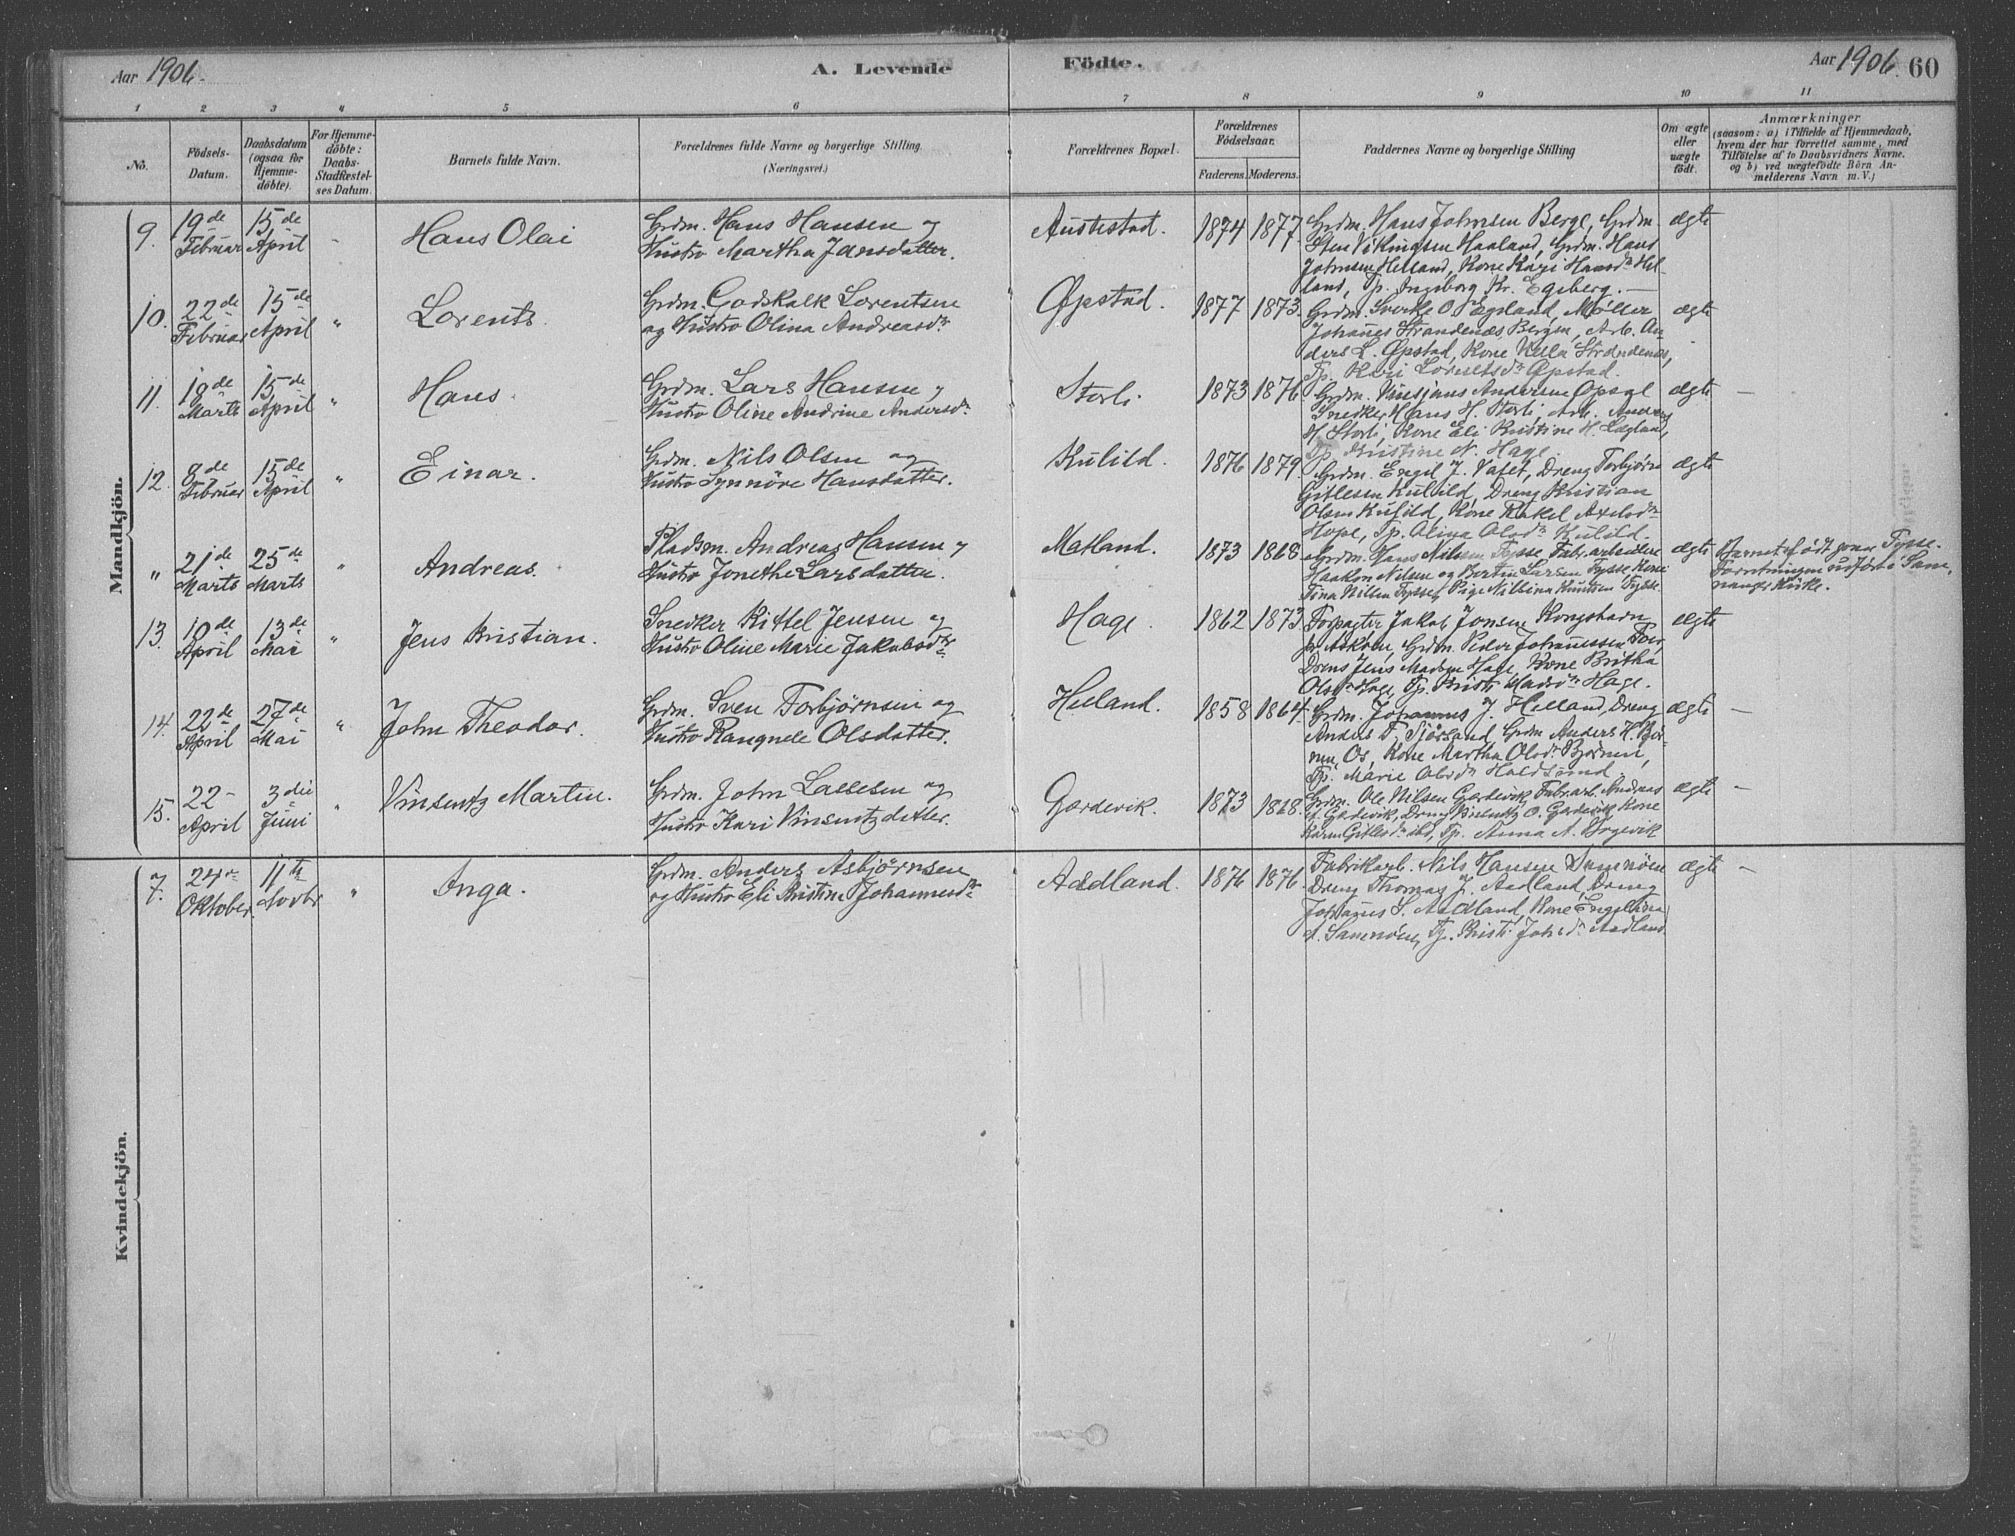 Aar 1906.
A. Levende Födte.
Aar 1906. 60
1 2 3 4 5 6 7 8 9 10 11
No.
Födsels-Datum.
Daabsdatum (ogsaa for Hjemmedöbte).
For Hjemmedöbte: Daabs-Stadfæstelses Datum.
Barnets fulde Navn.
Forældrenes fulde Navne og borgerlige Stilling.
(Næringsvei.)
Forældrenes Bopæl.
Forældrenes Födselsaar.
Faderens. Moderens.
Faddernes Navne og borgerlige Stilling
Om ægte eller uægte födt.
Anmærkninger
(saasom: a) i Tilfælde af Hjemmedaab,
hvem der har forrettet samme, med
Tilföielse af to Daabsvidners Navne.
og b) ved uægtefödte Börn An-
melderens Navn m. V.;
Mandkjön.
9. 19de Februar 15de April - Hans Olai
Grdm. Hans Hansen og
Hustro Martha Jansdatter.
Austestad. 1874 1877.
Grdm. Hans Johnsen Berge, Grdm.
Sten Vikingsen Haaland, Grdm. Hans
Johnsen Helland, Kone Kari Hansdr Hel-
land, Tp. Ingeborg Kr. Egeberg. —
ægte
10. 22de Februar 15de April " Lorents.
Grdm. Godskalk Lorentsen
og Hustro Olina Andreasdr
Øpstad. 1877 1873.
Grdm. Sverke O. Ægsland, Møller
Johanes Strandenæs Bergen, Arb. An-
ders L. Øpstad, Kone Strandenæs,
Tp. Kari Lorentsdr Øpstad.
ægte
11. 18de Marts 15de April " Hans.
Grdm. Lars Hansen og
Hustro Oline Andrine Andersdr.
Storli. 1873 1876
Grdm. Vinsjans Andersen Opsal
Snedker Hans H. Storli, Arb. Anders
H. Storli, Kone Eli Kristine H. Lægland,
Tp. Kristine N. Hage.
ægte —
12. 8de Februar 15de April " Einar.
Grdm. Nils Olsen og
Hustro Synnöve Hansdatter.
Kulild. 1876 1879.
Grdm. Engil J. Vatet, Dreng Torbjørn
Gitlesen Kulild, Dreng Kristian
Olsen Kulild, Kone Rakel Axelsdr
Hope, Tp. Olina Olsdr Kulild.
ægte
" 21de Marts 25de Marts " Andreas.
Pladsm. Andreas Hansen og
Hustro Jonethe Larsdatter.
Matland. 1873 1868
Grdm. Hans Nilsen Tysse Fabr.arbeidere
Haakon Nilsen og Bertin Larsen Tysse Kone
Tysse, Pige Nilbina Knutsen Tysse.
ægte
Barnet født paa Tysse.
Forretningen udført i Sam-
nanger Kirke.
13. 10de April 13de Mai " Jens Kristian.
Snedker Kittel Jensen og
Hustro Oline Marie Jakobsdtr.
Hage. 1862 1873
Forpagter Jakob Jonsen Kongshavn
pr Askøen, Grdm. Peder Johannessen
Dreng Jens Madsen Hage, Kone Britha
Olsdr Hage, Tp. Kristi Madsdr Hage.
ægte
14. 22de April 27de Mai " John Theodor.
Grdm. Sven Torbjørnsen og
Hustro Rangnele Olsdatter.
Helland. 1858 1864.
Grdm. Johannes J. Helland, Dreng
Anders T. Grdm Anders H. Bjø-
nen, Os, Kone Martha Olsdr Bjørnen,
Tp. Marie Olsdr Holdsund.
ægte —
15. 22- April 3die Juni " Vinsentz Martin.
Grdm. John Lassesen og
Hustro Kari Vinsentzdatter.
Gardevik. 1873 1868.
Grdm. Ole Nilsen Gardevik, Fabr.arb. Andreas
Gardevik, Dreng Vinsentz O. Gardevig Kone
Karen Gitlesdr ibd, Tp. Anna A. Bogevik
ægte —
Kvindekjön.
7. 24de Oktober 11te Novbr " Inga.
Grdm. Anders Asbjørnsen
og Hustro Eli Kristine Johannesdr
Aadland. 1876 1876.
Fabrikarb. Nils Hansen Samnøen
Dreng Thomas J. Aadland, Dreng
Johanes S. Aadland, Kone Engelina
A. Samnøen, Tp. Kristi Johsdr Aadland
ægte —